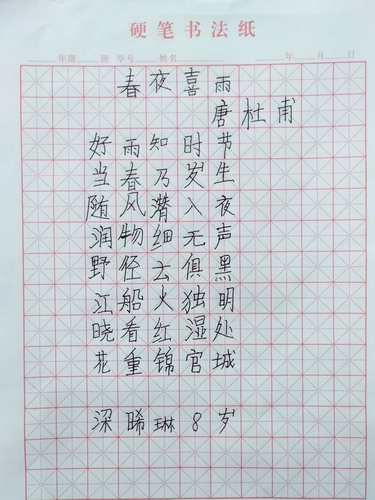 硬笔书法纸
年级 班 学号 姓名 年 月 日
春夜喜雨
唐杜甫
好雨知时节
当春乃岁生
随风潜入夜
润物细无声
野径云俱黑
江船火独明
晓看红湿处
花重锦官城
梁晞琳8岁